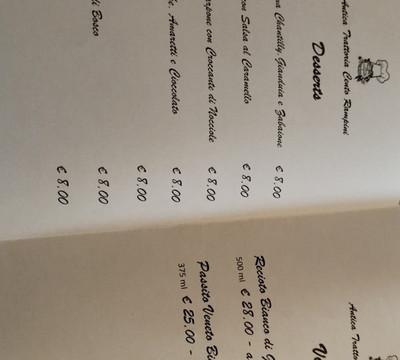 Antica Trattoria Cento Rampini
Desserts
Chantilly, Gianduia e Zabaione € 8.00
con Salsa al Caramello € 8.00
con Croccante di Nocciole € 8.00
Amaretti e Cioccolato € 8.00
€ 8.00
di Bosco € 8.00
€ 8.00
Antica
Recioto Bianco di
500 ml € 28.00 -
Passito Veneto
375 ml € 25.00 -